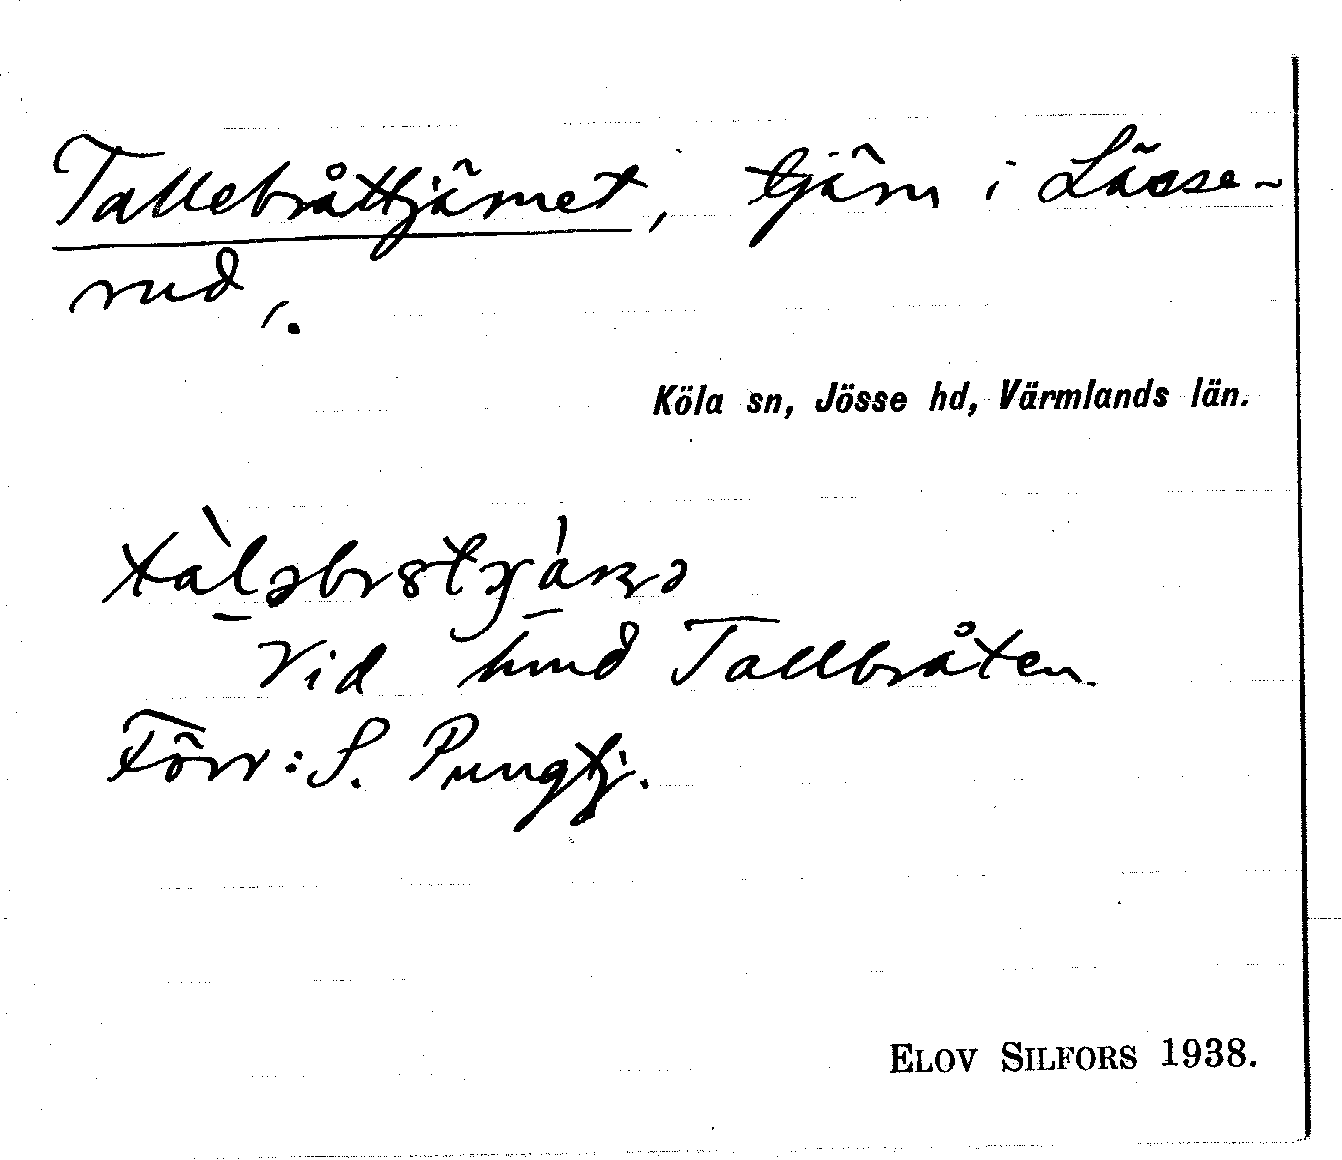 Tallebråttjärnet, tjärn i Lässe-
rud,.
Köla sn, Jösse hd, Värmlands län.
Vid hmd Tallbråten
Förr: S. Pungtj.
ELOV SILFORS 1938.